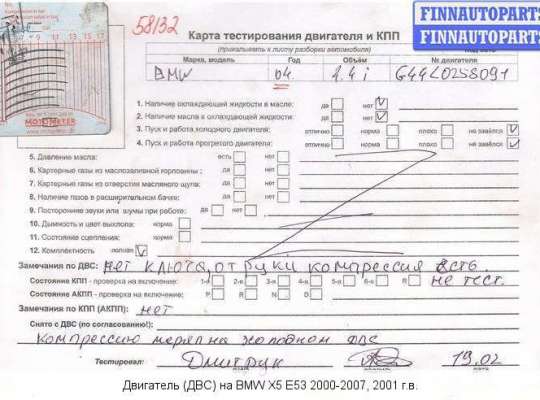 58132
FINNAUTOPARTS
FINNAUTOPARTS
Карта тестирования двигателя и КПП
(прикалывать к листу разборки автомобиля)
Марка, модель Год Объём № двигателя
BMW 04 4.4i
MOTOMETER
1. Наличие охлаждающей жидкости в масле: да нет V
2. Наличие масла в охлаждающей жидкости: да нет
3. Пуск и работа холодного двигателя: отлично норма плохо не завёлся V
4. Пуск и работа прогретого двигателя: отлично норма плохо не завёлся V
5. Давление масла: есть нет
6. Картерные газы из маслозаливной горловины: да нет
7. Картерные газы из отверстия масляного щупа: да нет
8. Наличие газов в расширительном бачке: да нет
9. Посторонние звуки или шумы при работе: да нет
10. Дымность и цвет выхлопа: норма
11. Состояние сцепления: норма
12. Комплектность полная V
Замечания по ДВС: нет ключа, от руки компрессия есть.
Состояние КПП - проверка на включение: 1-я 2-я 3-я 4-я 5-я 6-я R не тест.
Состояние АКПП - проверка на включение: P R N D
Замечания по КПП (АКПП): нет
Снято с ДВС (по согласованию!):
компрессию мерял на холодном ДВС
Тестировал: Дмитрук 19.02
Двигатель (ДВС) на BMW X5 E53 2000-2007, 2001 г.в.